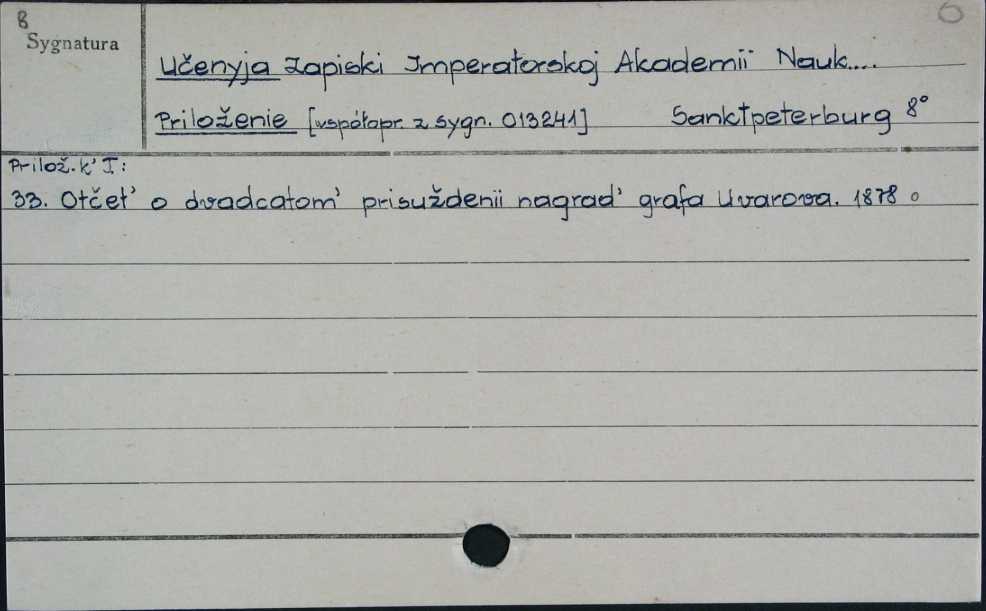 8
6
Sygnatura
Učenyja Zapiski Imperatorskoj Akademii Nauk....
Priloženie [współopr. z sygn. 013241] Sanktpeterburg 8°
Prilož. k' I:
33. Otčet' o dvadcatom' prisuždenii nagrad' grafa Uvarova. 1878